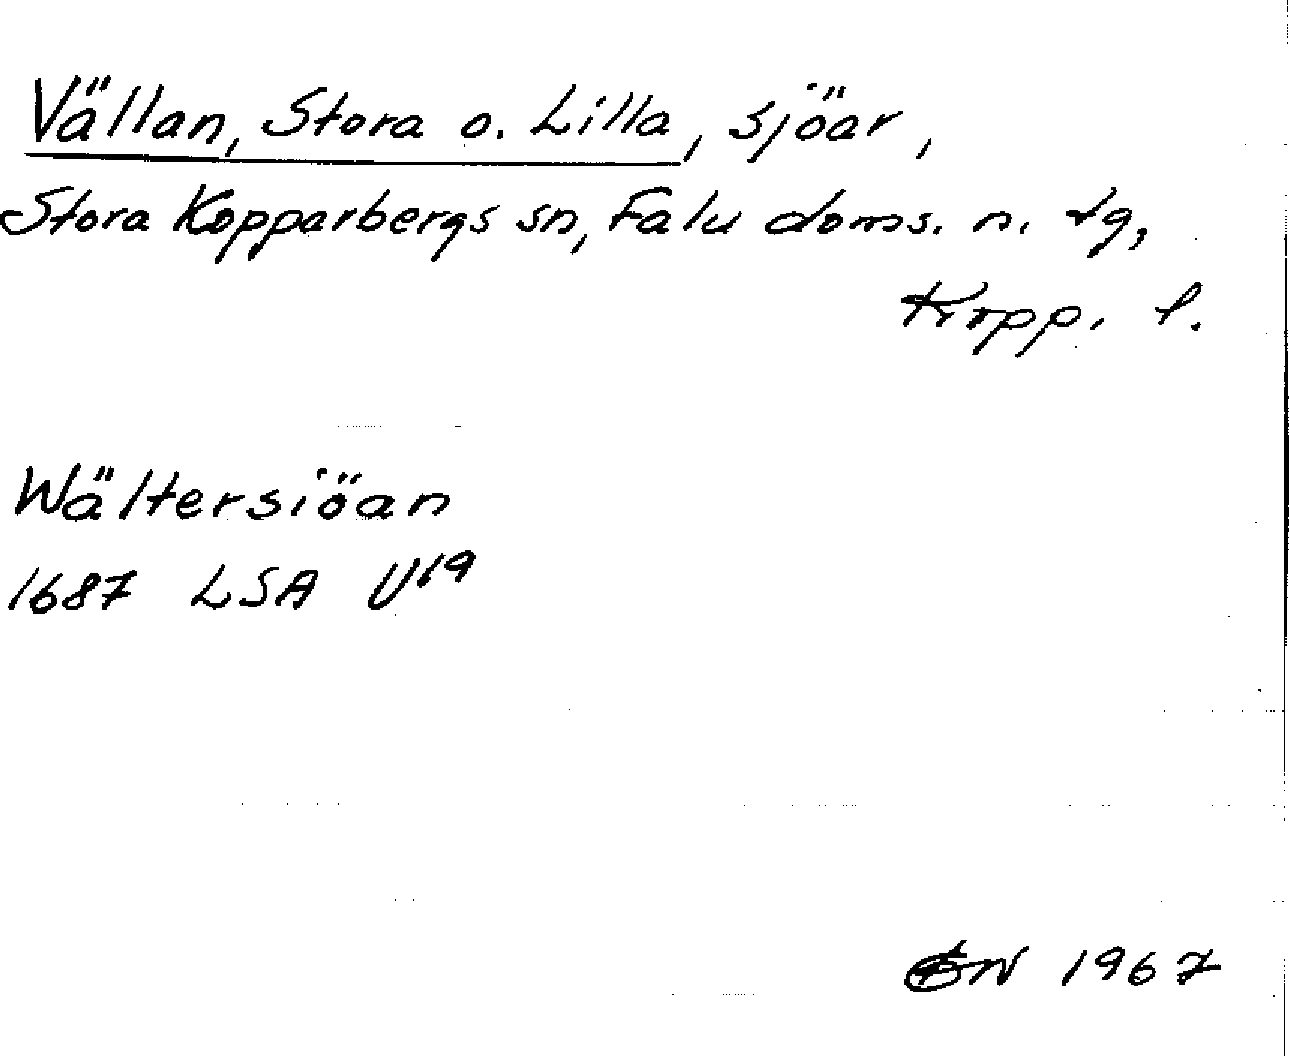 Vällan, Stora o. Lilla, sjöar,
Stora Kopparbergs sn, Falu doms. n. tg,
Kopp. l.
Wältersiöan
1687 LSA U¹⁹
1967